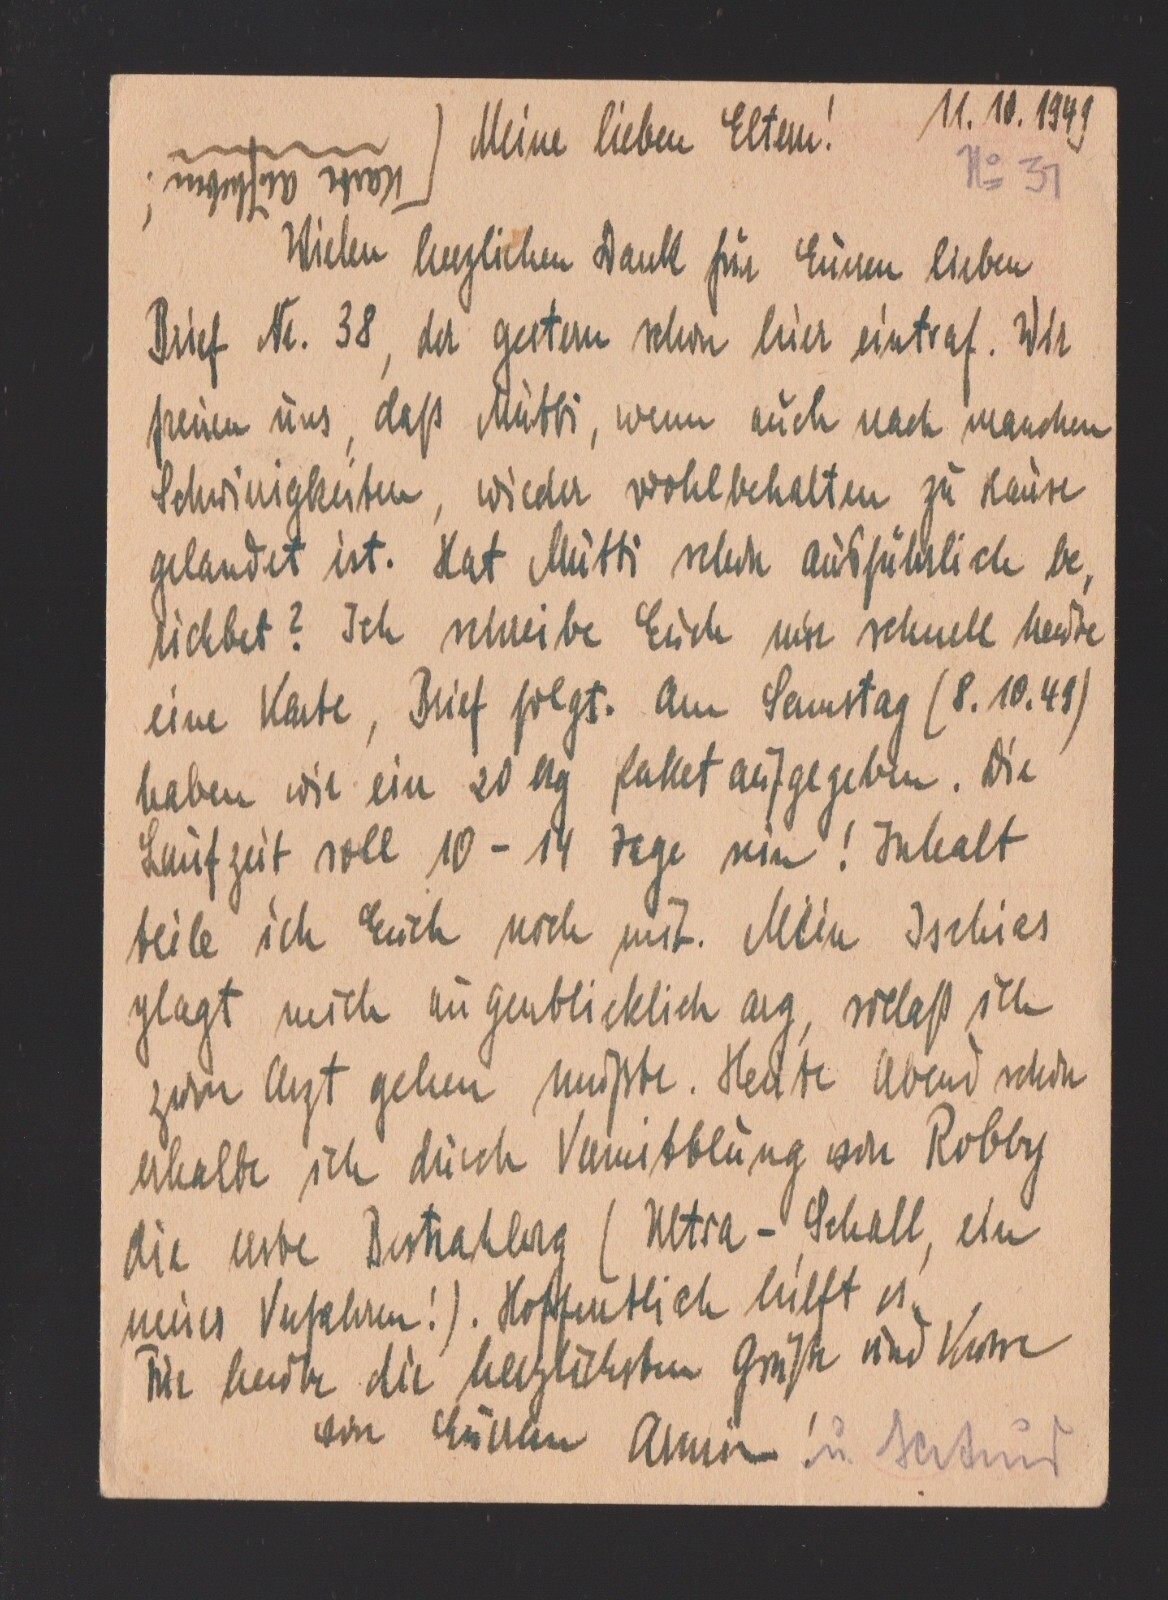 11.10.1949
Meine lieben Eltern!
No 31
Karte aufheben!
Vielen herzlichen Dank für Euren lieben
Brief Nr. 38, der gestern schon hier eintraf. Wir
freuen uns, daß Mutti, wenn auch nach manchen
Schwierigkeiten, wieder wohlbehalten zu Hause
gelandet ist. Hat Mutti schon ausführlich be-
richtet? Ich schreibe Euch nur schnell heute
eine Karte, Brief folgt. Am Samstag (8.10.49)
haben wir ein 20 kg Paket aufgegeben. Die
Laufzeit soll 10 - 14 Tage sein! Inhalt
teile ich Euch noch mit. Mein Ischias
plagt mich augenblicklich arg, sodaß ich
zum Arzt gehen mußte. Heute Abend schon
erhalte ich durch Vermittlung von Robby
die erste Bestrahlung (Ultra - Schall, ein
neues Verfahren!). Hoffentlich hilft es.
Für heute die herzlichsten Grüße und Küsse
von Eurem Armin! u. Gertrud